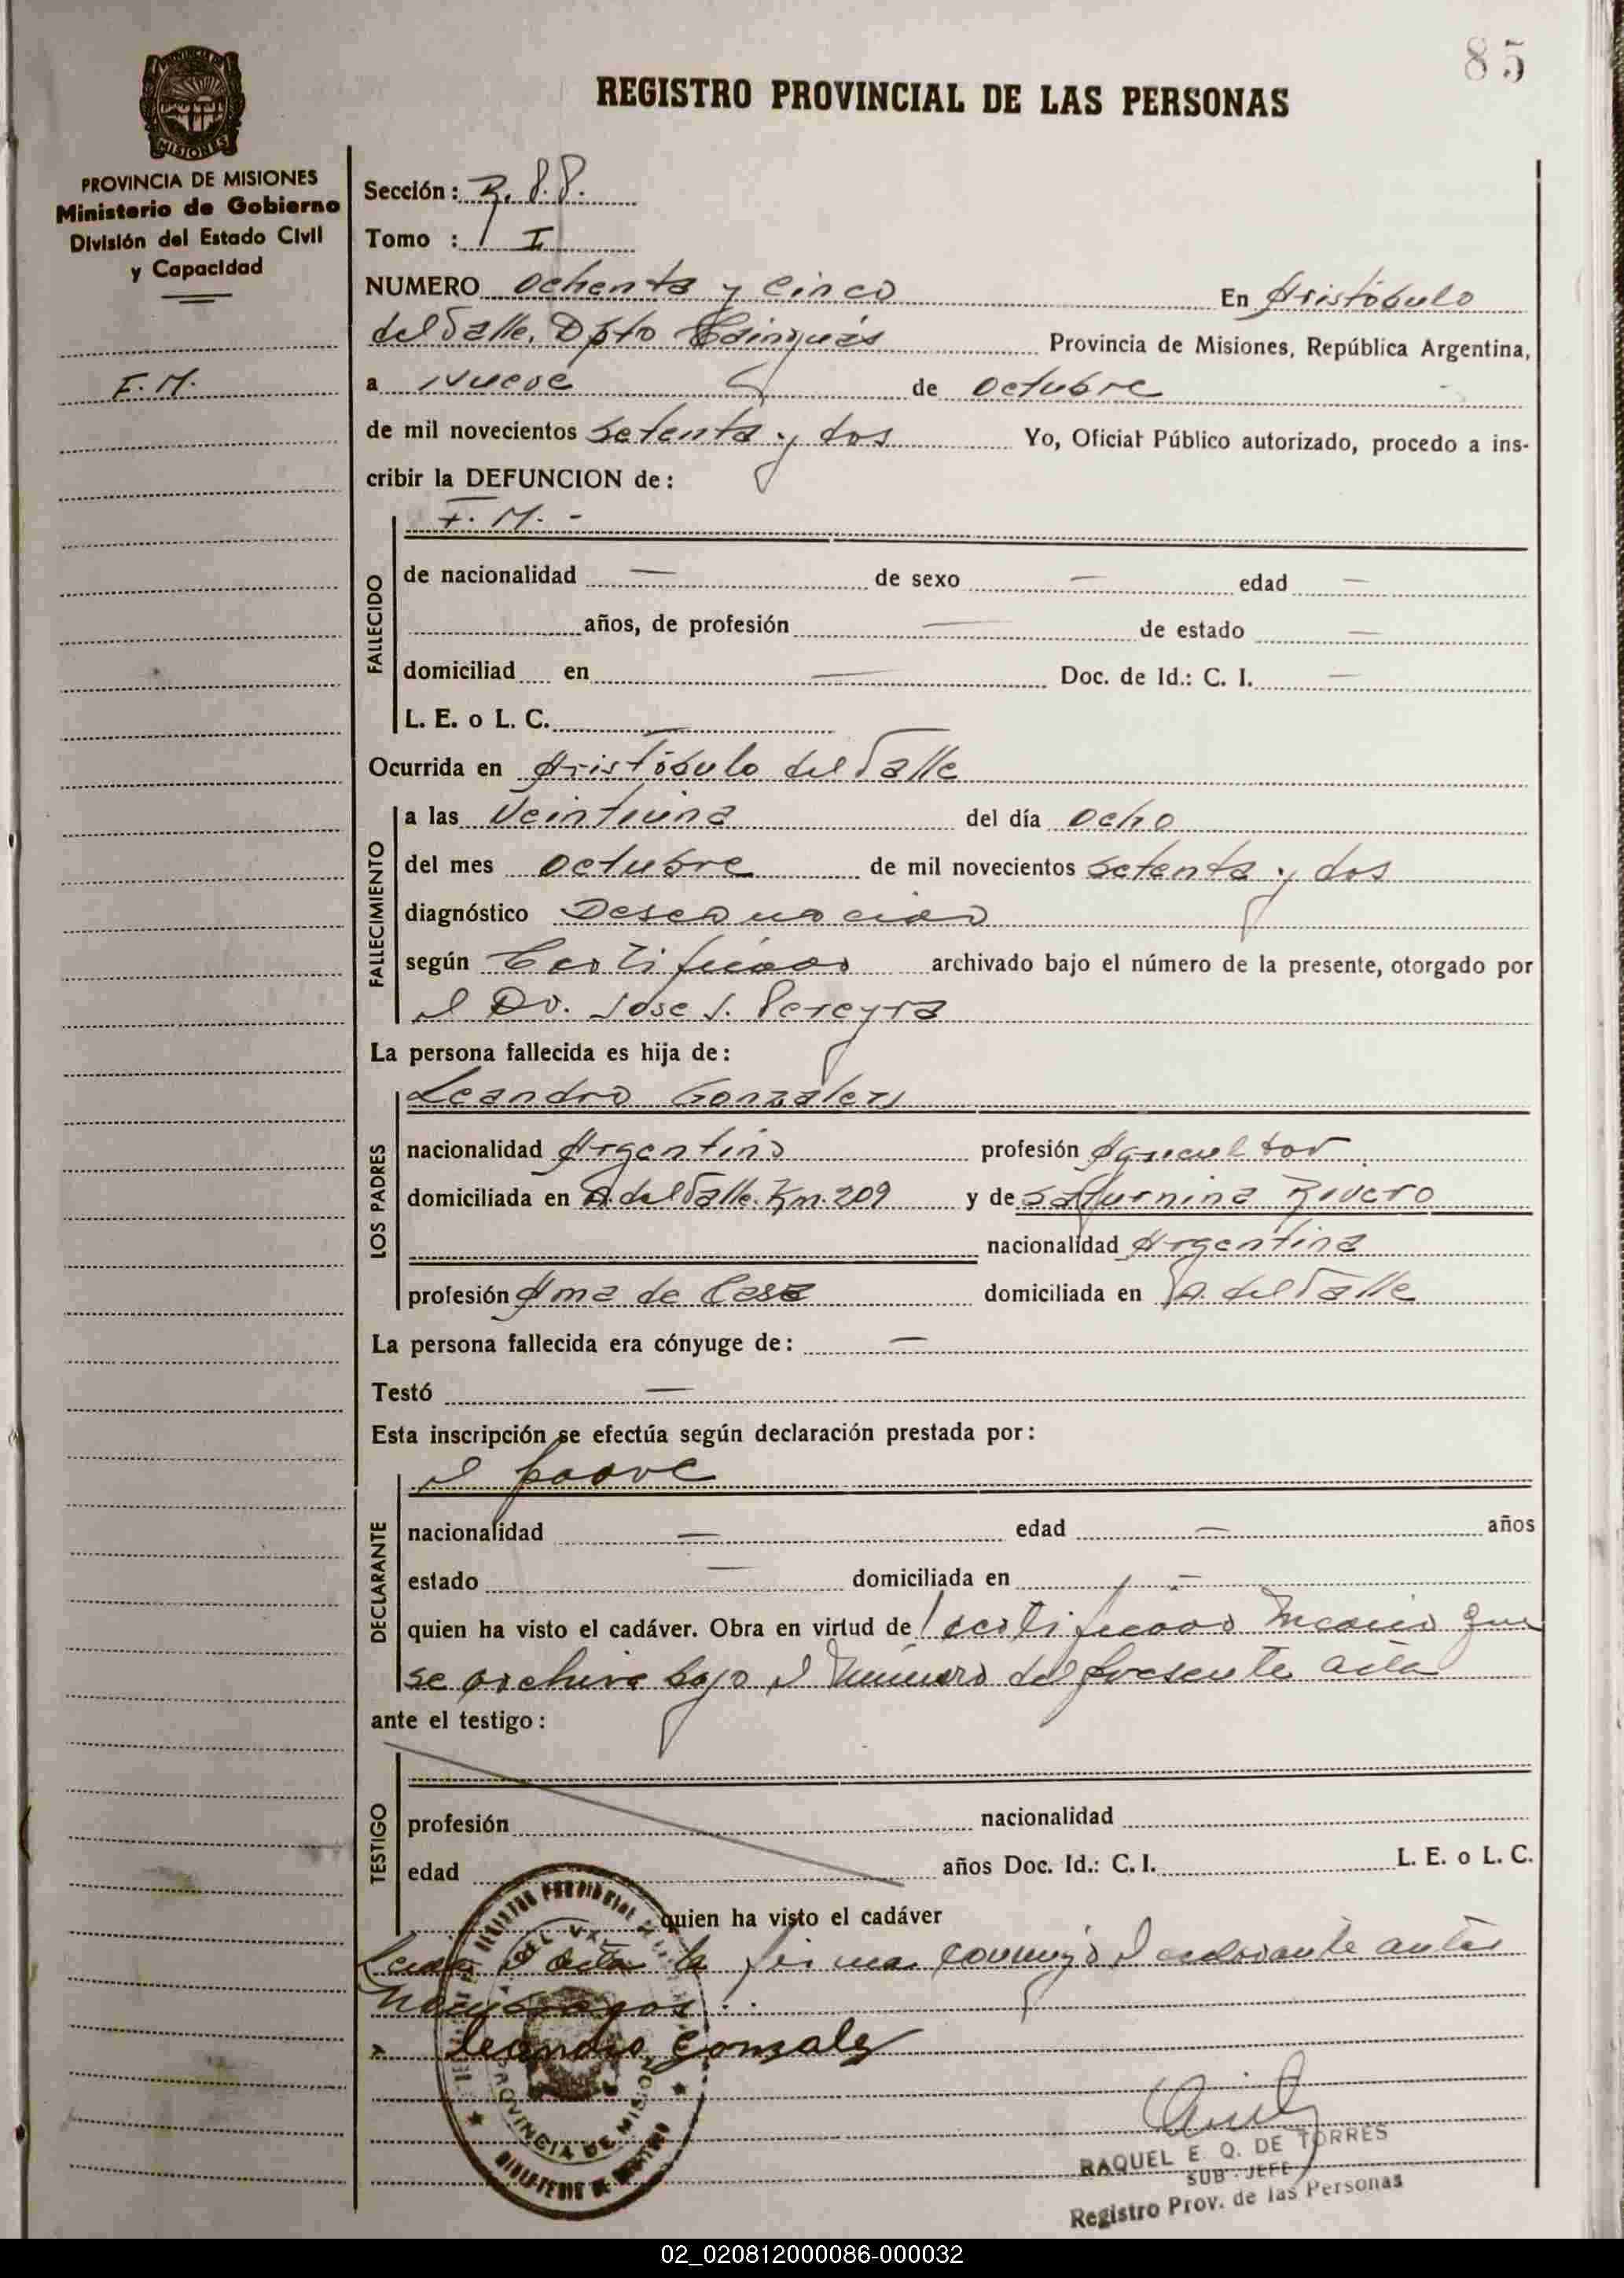 85
REGISTRO PROVINCIAL DE LAS PERSONAS
MISIONES
PROVINCIA DE MISIONES
Ministerio de Gobierno
División del Estado Civil
y Capacidad
F. M.
Sección:
Tomo : I
NUMERO Ochenta y Cinco En Aristóbulo
del Valle. Dpto Cainguás Provincia de Misiones, República Argentina,
a Nueve de Octubre
de mil novecientos Setenta y dos Yo, Oficial Público autorizado, procedo a ins-
cribir la DEFUNCION de:
F. M. -
FALLECIDO
de nacionalidad — de sexo — edad —
años, de profesión — de estado —
domiciliad en — Doc. de Id.: C. I. —
L. E. o L. C. —
Ocurrida en Aristóbulo del Valle
FALLECIMIENTO
a las Veintiuna del día Ocho
del mes Octubre de mil novecientos Setenta y dos
diagnóstico Desconocido
según Certificado archivado bajo el número de la presente, otorgado por
el Dr. Jose J. Pereyra
La persona fallecida es hija de:
LOS PADRES
Leandro Gonzalez
nacionalidad Argentino profesión Agricultor
domiciliada en A. del Valle. Km. 209 y de Saturnina Rivero
nacionalidad Argentina
profesión Ama de Casa domiciliada en A. del Valle
La persona fallecida era cónyuge de: —
Testó —
Esta inscripción se efectúa según declaración prestada por:
el padre
DECLARANTE
nacionalidad — edad — años
estado — domiciliada en —
quien ha visto el cadáver. Obra en virtud de certificado Medico que
se archiva bajo el Número del presente acta
ante el testigo:
TESTIGO
profesión nacionalidad
edad años Doc. Id.: C. I. L. E. o L. C.
quien ha visto el cadáver
Leida el acta la firma conmigo el declarante
Leandro Gonzalez
PROVINCIA DE MISIONES
RAQUEL E. Q. DE TORRES
SUB - JEFE
Registro Prov. de las Personas
02_020812000086-000032